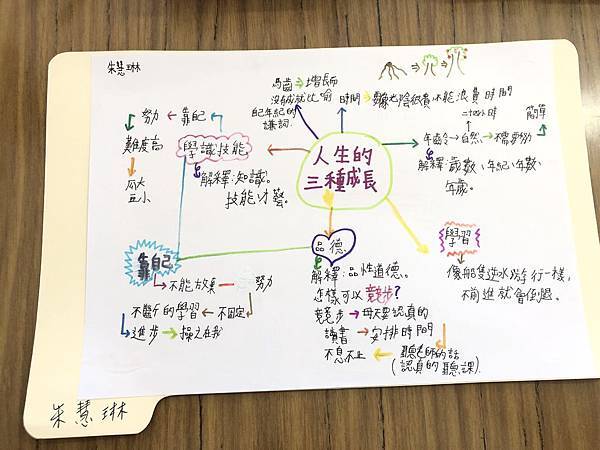 朱慧琳
馬齒→增長而
沒成就比喻
自己年紀的
謙詞。
時間→
光陰低賣不能浪費時間
二十四小時
簡單
年齡→自然→不需要努力
解釋:歲數、年紀、年數、
年歲。
人生的
三種成長
努力←靠自己
難度高
瓜大
豆小
學識技能
解釋:知識。
技能才藝。
品德
解釋:品性道德。
怎樣可以競步?
競步→
要認真的
讀書→安排時間
不息不止←聽老師的話
(認真的聽課)
學習
像船隻逆水游行一樣,
不前進就會倒退。
靠自己
不能放棄—努力
不斷的學習←不固定
進步→操之在我
朱慧琳